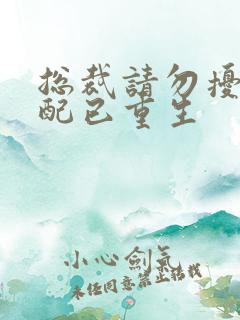 总裁請勿擾
配已重生
小心劍氣
未经同意禁止转载